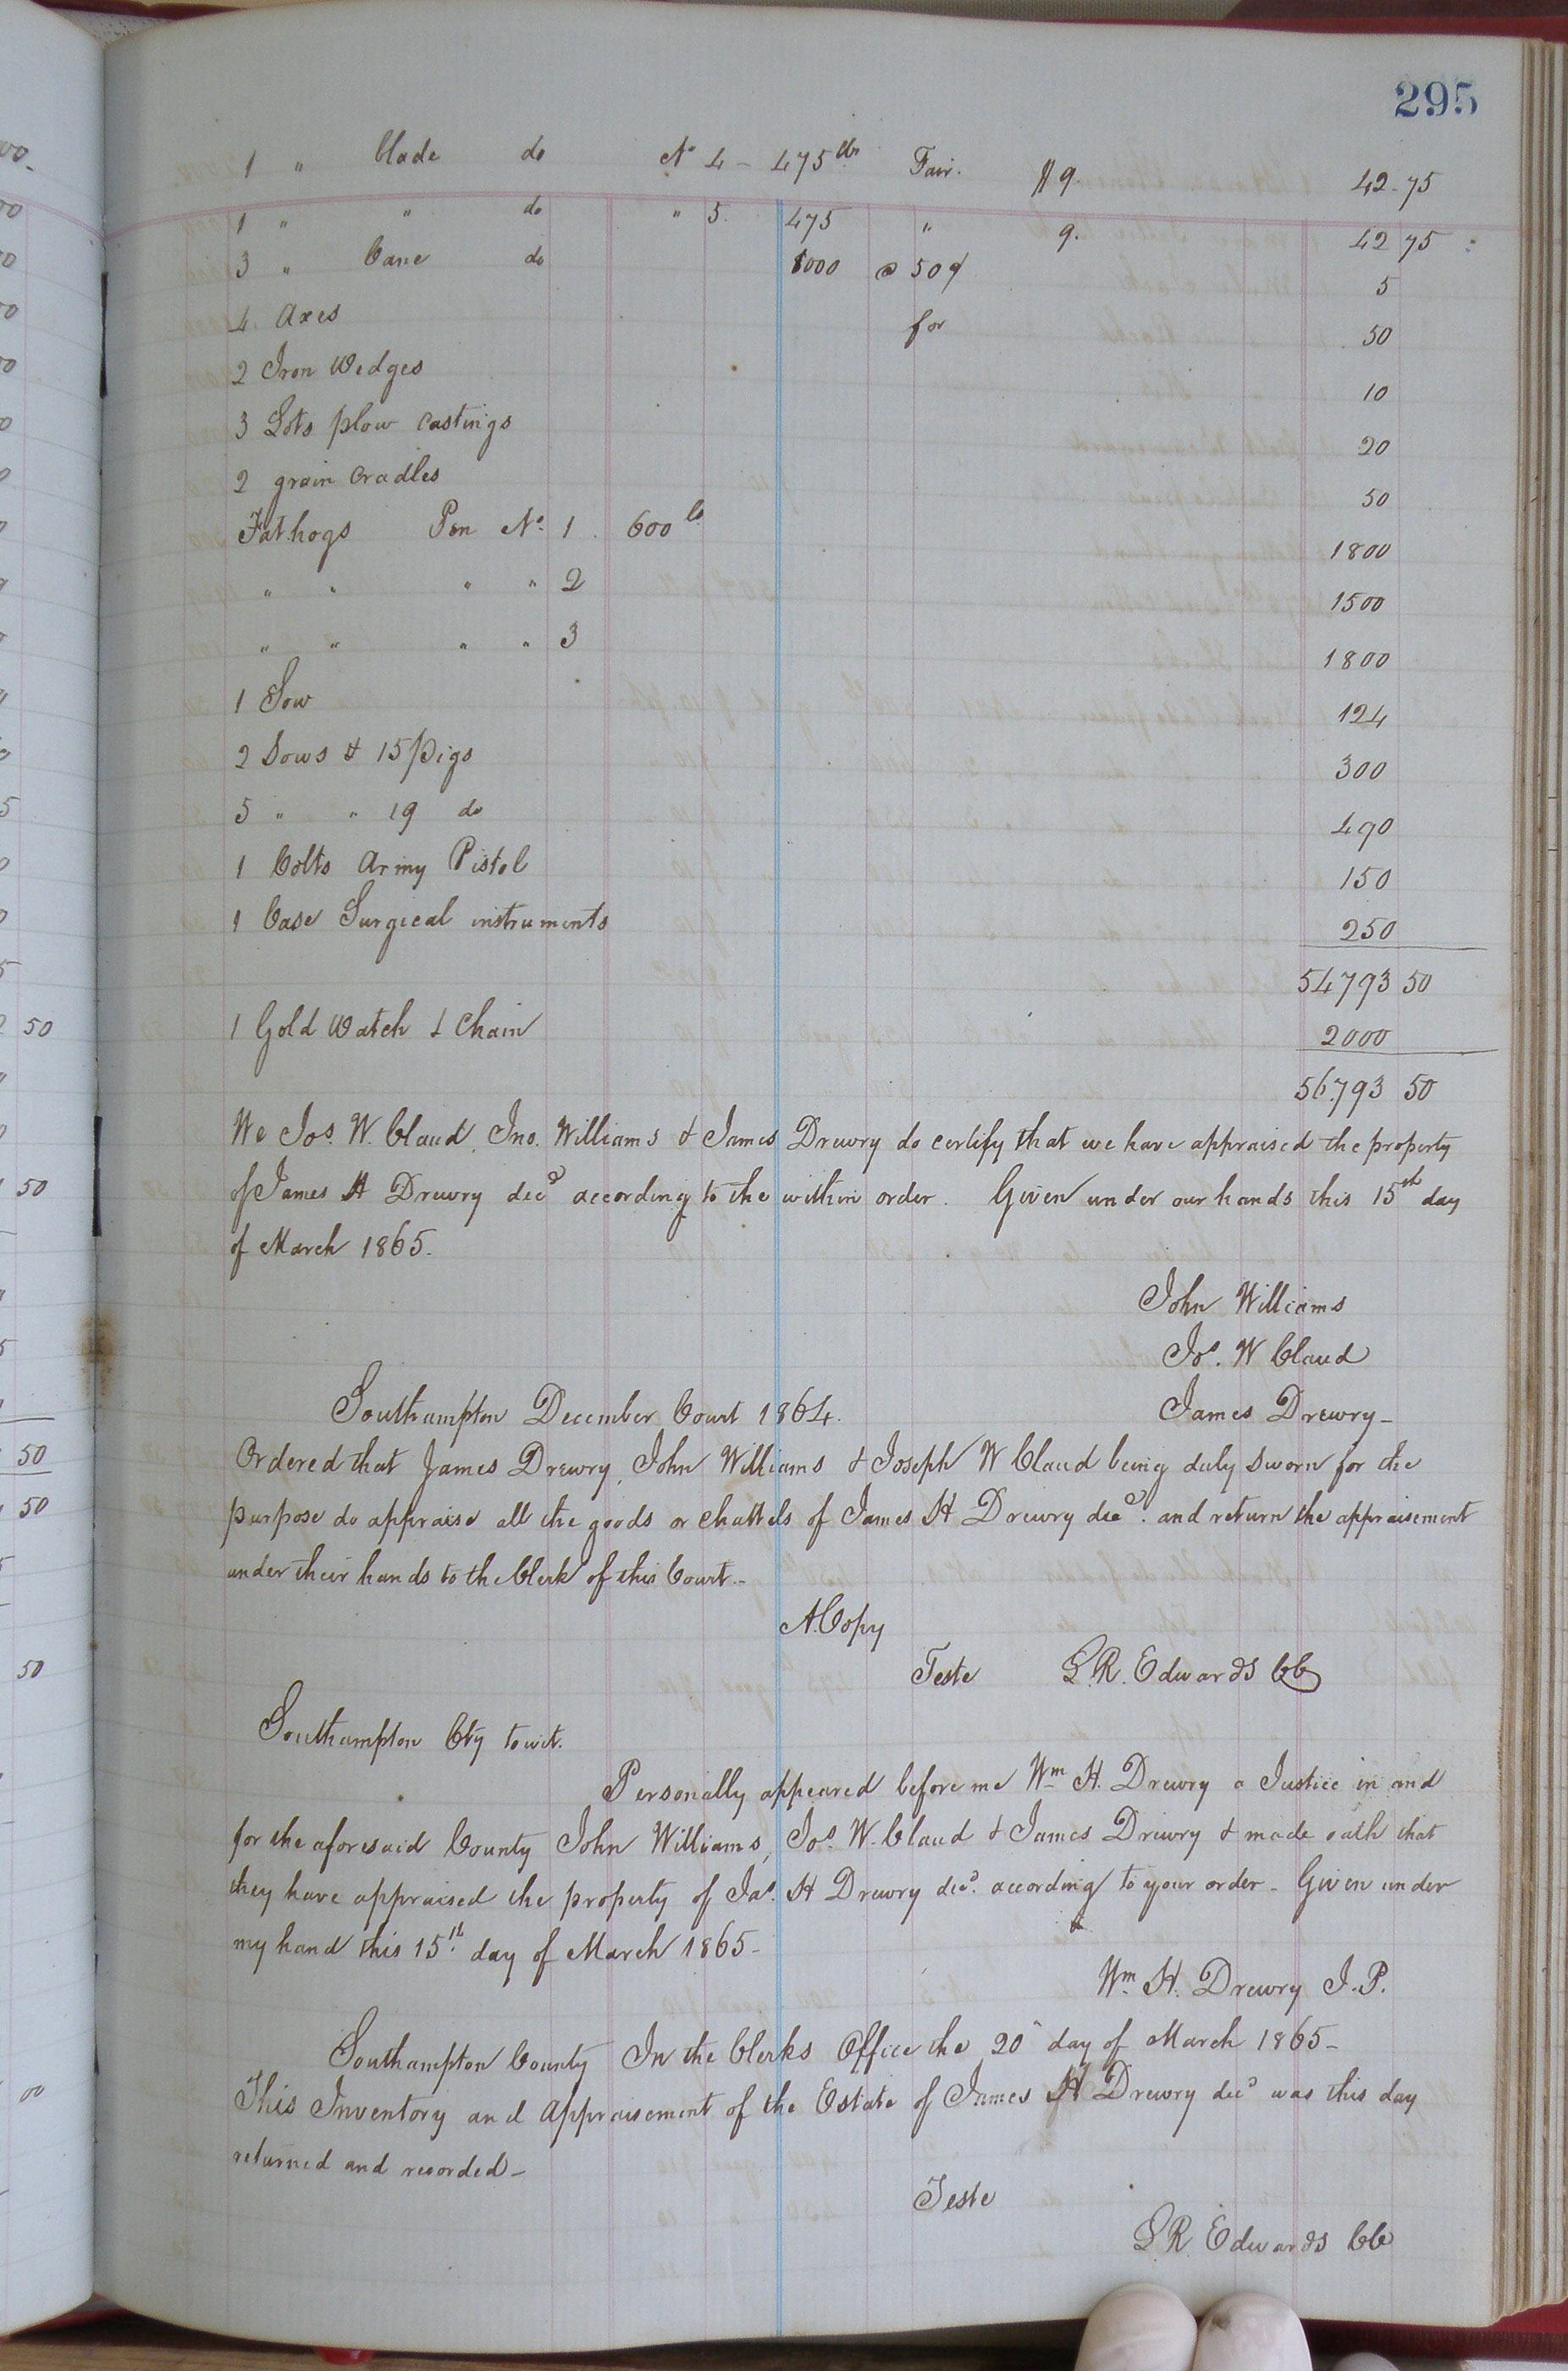 295
1 " blade do No 4 - 475 lbs Fair. $9. 42.75
1 " " do " 5. 475 " 9. 42 75
3 " Cane do 1000 @ 50¢ 5
4 Axes for 50
2 Iron Wedges 10
3 Lots plow castings 20
2 grain Cradles 50
Fat hogs Pen No. 1. 600 lb 1800
" " " " 2 1500
" " " " 3 1800
1 Sow 124
2 Sows & 15 pigs 300
5 " " 19 do 490
1 Colts Army Pistol 150
1 Case Surgical instruments 250
54793 50
1 Gold Watch & Chain 2000
56.793 50
We Jos. W. Claud, Jno. Williams & James Drewry do certify that we have appraised the property
of James H Drewry decd according to the within order. Given under our hands this 15th day
of March 1865.
John Williams
Jos. W Claud
James Drewry -
Southampton December Court 1864.
Ordered that James Drewry, John Williams & Joseph W Claud being duly sworn for the
purpose do appraise all the goods or chattels of James H Drewry decd. and return the appraisement
under their hands to the Clerk of this Court. -
A Copy
Teste L. R. Edwards CC
Southampton Cty towit.
Personally appeared before me Wm H. Drewry a Justice in and
for the aforesaid County John Williams, Jos. W. Claud & James Drewry & made oath that
they have appraised the property of Jas. H Drewry decd. according to your order - Given under
my hand this 15th day of March 1865 -
Wm. H. Drewry J. P.
Southampton County In the Clerks Office the 20" day of March 1865 -
This Inventory and Appraisement of the Estate of James H Drewry decd was this day
returned and recorded -
Teste
L. R. Edwards CC
50
50
50
50
50
00